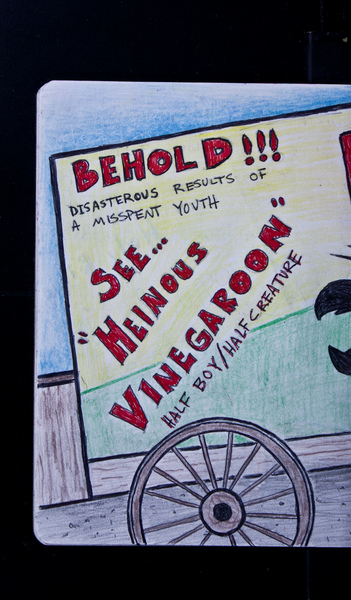 BEHOLD!!!
DISASTEROUS RESULTS OF
A MISSPENT YOUTH
SEE...
"HEINOUS
VINEGAROON"
HALF BOY/HALF CREATURE